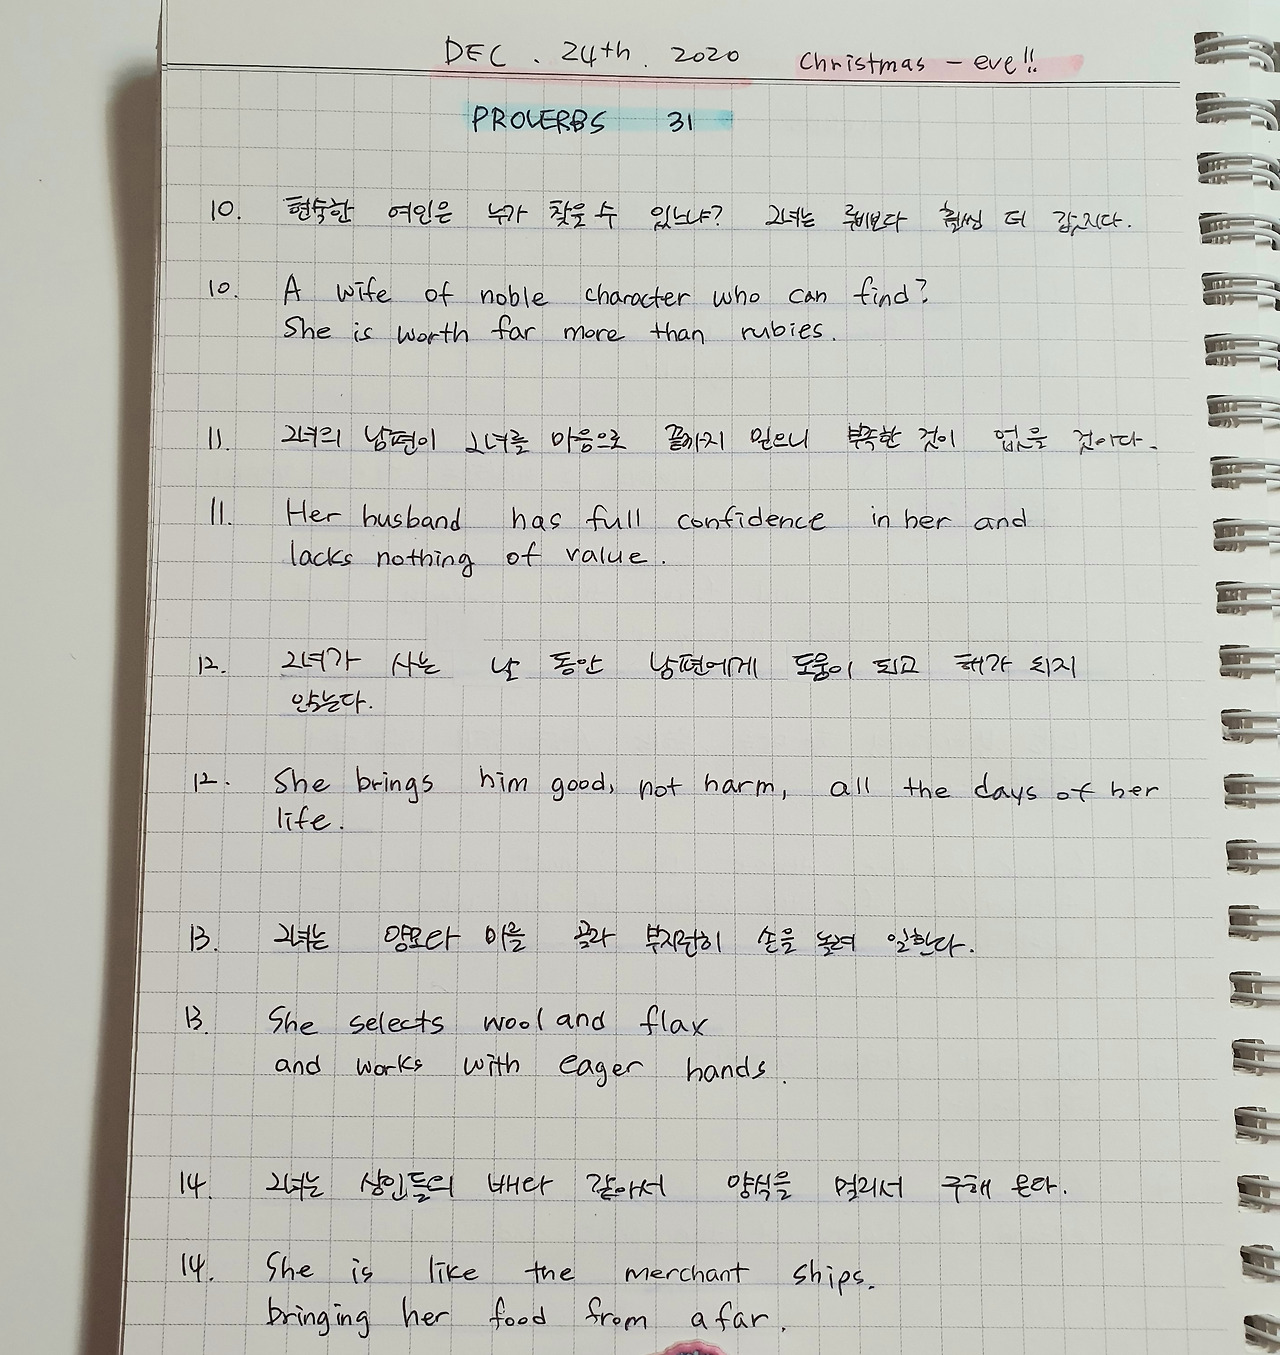 DEC . 24th . 2020 christmas - eve!!
PROVERBS 31
10. 현숙한 여인은 누가 찾을 수 있느냐? 그녀는 루비보다 훨씬 더 값지다.
10. A wife of noble character who can find?
She is worth far more than rubies.
11. 그녀의 남편이 그녀를 마음으로 끝까지 믿으니 부족한 것이 없을 것이다.
11. Her husband has full confidence in her and
lacks nothing of value.
12. 그녀가 사는 날 동안 남편에게 도움이 되고 해가 되지
않는다.
12. She brings him good, not harm, all the days of her
life.
13. 그녀는 양모와 마을 골라 부지런히 손을 놀려 일한다.
13. She selects wool and flax
and works with eager hands.
14. 그녀는 상인들의 배와 같아서 양식을 멀리서 구해 온다.
14. She is like the merchant ships.
bringing her food from afar.